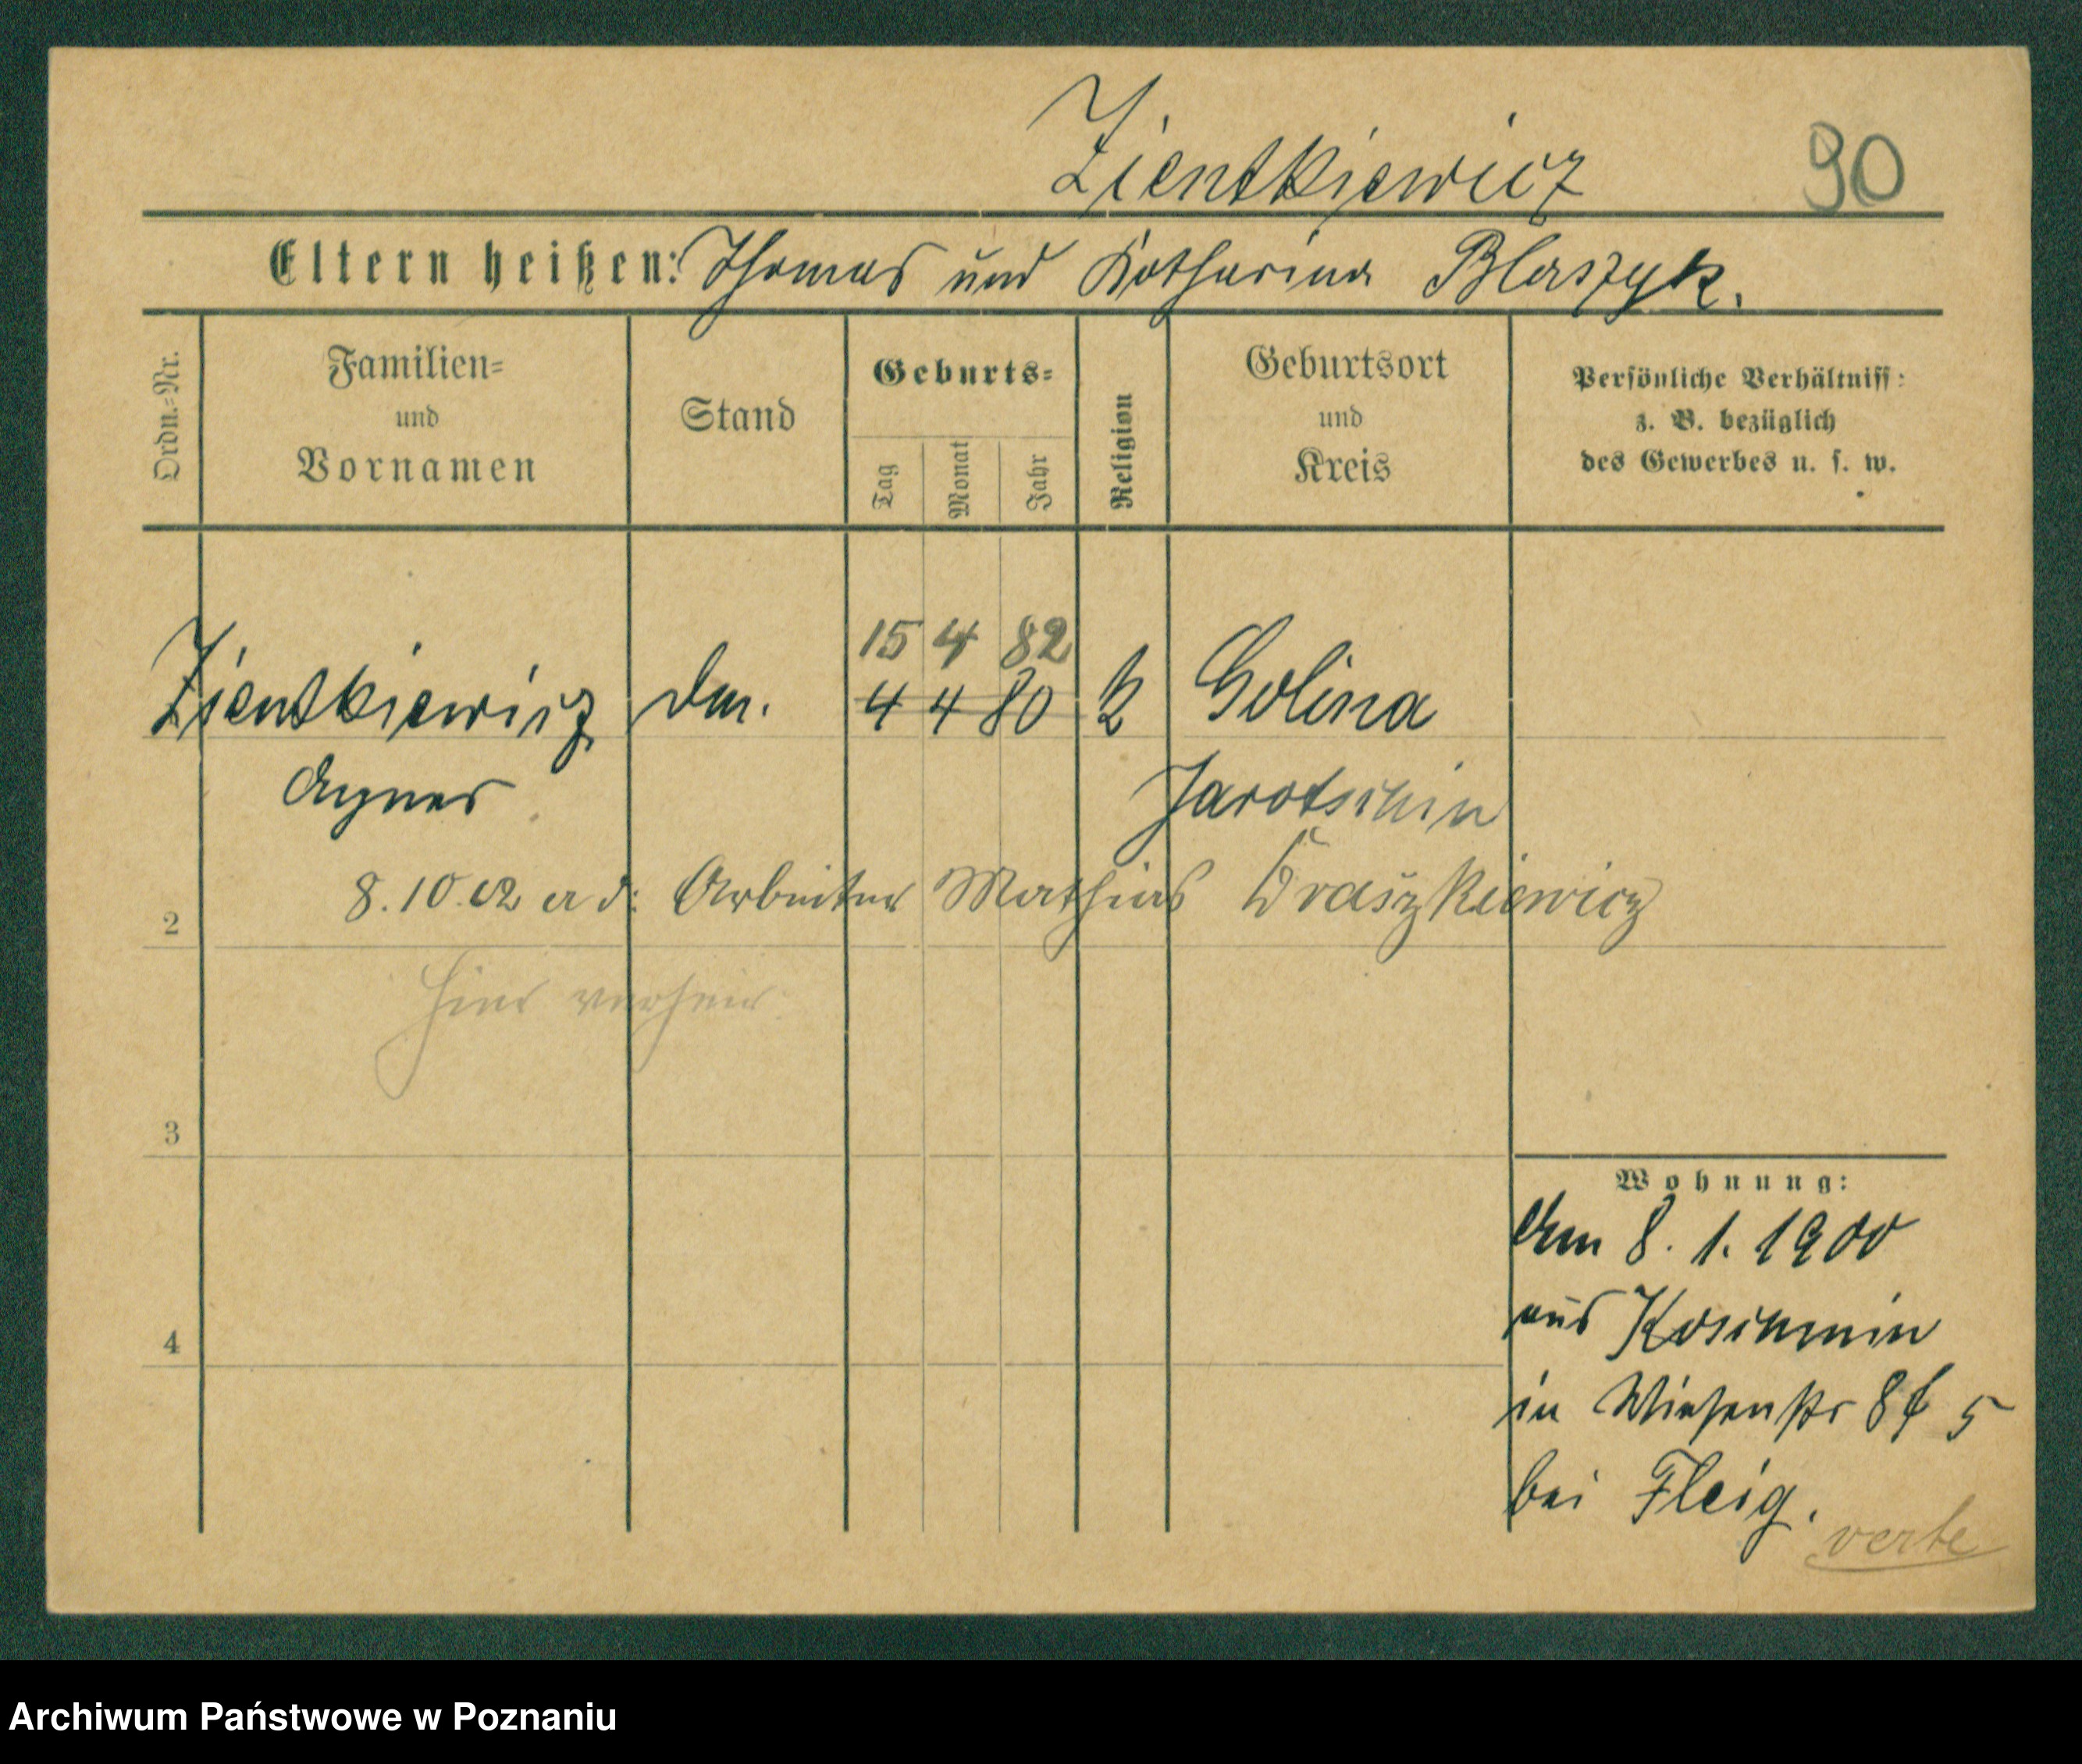 Zientkiewicz 90
Eltern heißen: Thomas und Katharina Blaszyk.
Ordn.-Nr.
Familien-
und
Vornamen
Stand
Geburts-
Tag
Monat
Jahr
Religion
Geburtsort
und
Kreis
Persönliche Verhältniss:
z. B. bezüglich
des Gewerbes u. s. w.
15 4 82
Zientkiewicz 4 4 80 k Golina
Agnes Jarotschin
2 8.10.02 a d: Arbeiter Mathias Kraszkiewicz
hier
3
4
Wohnung:
Am 8. 1. 1900
aus Koschmin
in Wiesenstr 8 5
bei Fleig.
verte
Archiwum Państwowe w Poznaniu